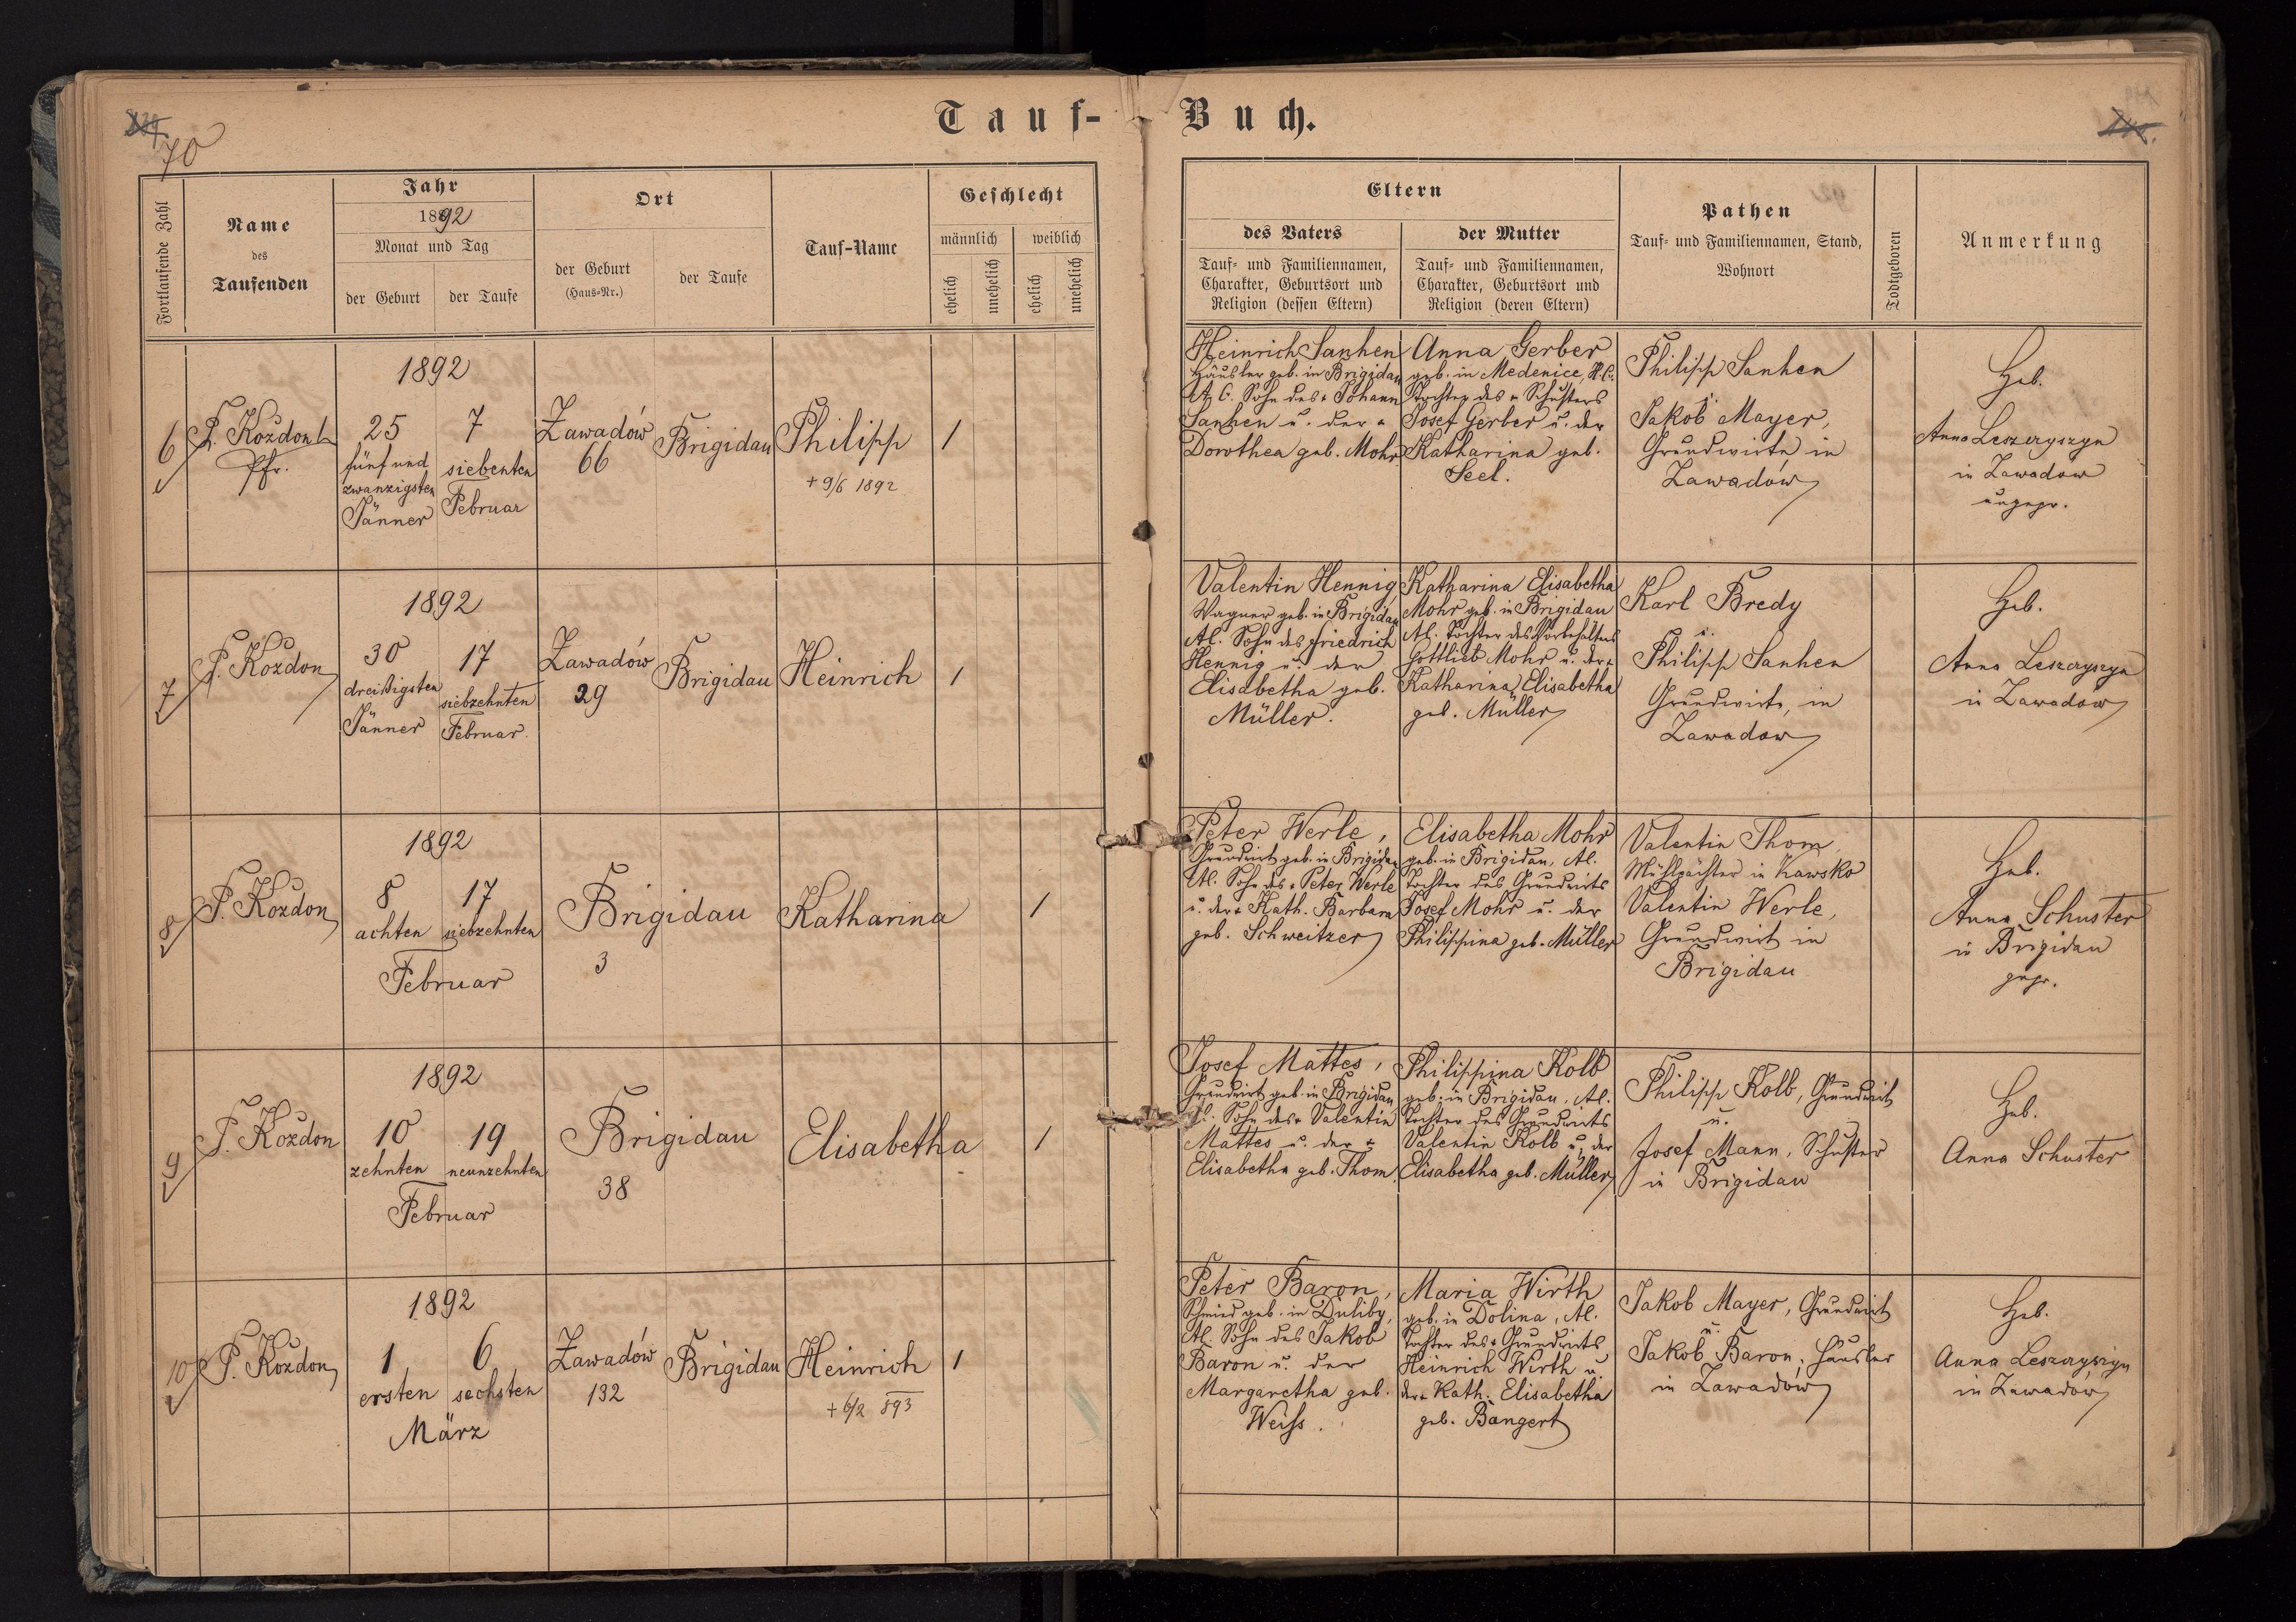 Tauf-Buch.
70
Fortlaufende Zahl
Name
des
Taufenden
Jahr
1892
Monat und Tag
der Geburt
der Taufe
Ort
der Geburt
(Haus-Nr.)
der Taufe
Tauf-Name
Geschlecht
männlich
weiblich
ehelich
unehelich
ehelich
unehelich
Eltern
des Vaters
Tauf- und Familiennamen,
Charakter, Geburtsort und
Religion (dessen Eltern)
der Mutter
Tauf- und Familiennamen,
Charakter, Geburtsort und
Religion (deren Eltern)
Pathen
Tauf- und Familiennamen, Stand,
Wohnort
Todtgeboren
Anmerkung
6
Kozdon
Pfr.
1892
25
fünf und
zwanzigsten
Jänner
7
siebenten
Februar
Zawadów
66
Brigidau
Philipp
+ 9/6 1892
1
Heinrich Sanhen
Häusler geb. in Brigidau
A. C. Sohn des + Johann
Sanhen u. der +
Dorothea geb. Mohr
Anna Gerber
geb. in Medenice, H. C.
Tochter des + Schusters
Josef Gerber u. der
Katharina geb.
Seel.
Philipp Sanhen
u.
Jakob Mayer,
Grundwirte in
Zawadów
Heb.
Anna Leszczyszyn
in Zawadow
ungepr.
7
P. Kozdon
1892
30
dreißigsten
Jänner
17
siebzehnten
Februar
Zawadów
29
Brigidau
Heinrich
1
Valentin Hennig
Wagner geb. in Brigidau
Al. Sohn des Friedrich
Hennig u. der
Elisabetha geb.
Müller.
Katharina Elisabetha
Mohr geb. in Brigidau
Al. Tochter des Vorbehälters
Gottlieb Mohr u. der +
Katharina Elisabetha
geb. Müller
Karl Bredy
u.
Philipp Sanhen
Grundwirte, in
Zawadow
Heb.
Anna Leszczyszyn
in Zawadów
8
P. Kozdon
1892
8
achten
17
siebzehnten
Februar
Brigidau
3
Katharina
1
Peter Werle,
Grundwirt geb. in Brigidau
Al. Sohn des + Peter Werle
u. der + Kath. Barbara
geb. Schweitzer
Elisabetha Mohr
geb. in Brigidau, Al.
Tochter des Grundwirts
Josef Mohr u. der
Philippina geb. Müller
Valentin Thom,
Mühlpächter in Kawsko
Valentin Werle,
Grundwirt in
Brigidau
Heb.
Anna Schuster
in Brigidau
gepr.
9
P. Kozdon
1892
10
zehnten
19
neunzehnten
Februar
Brigidau
38
Elisabetha
1
Josef Mattes,
Grundwirt geb. in Brigidau
Al. Sohn des + Valentin
Mattes u. der +
Elisabetha geb. Thom.
Philippina Kolb
geb. in Brigidau, Al.
Tochter des Grundwirts
Valentin Kolb u. der
Elisabetha geb. Müller
Philipp Kolb, Grundwirt
u.
Josef Mann, Schuster
in Brigidau
Heb.
Anna Schuster
10
P. Kozdon
1892
1
ersten
6
sechsten
März
Zawadów
132
Brigidau
Heinrich
+ 6/2 893
1
Peter Baron,
Schmied geb. in Duliby,
Al. Sohn des Jakob
Baron u. der
Margaretha geb.
Weiss.
Maria Wirth
geb. in Dolina, Al.
Tochter des + Grundwirts
Heinrich Wirth u.
der + Kath. Elisabetha
geb. Bangert
Jakob Mayer, Grundwirt
u.
Jakob Baron, Häusler
in Zawadów
Heb.
Anna Leszczyszyn
in Zawadów